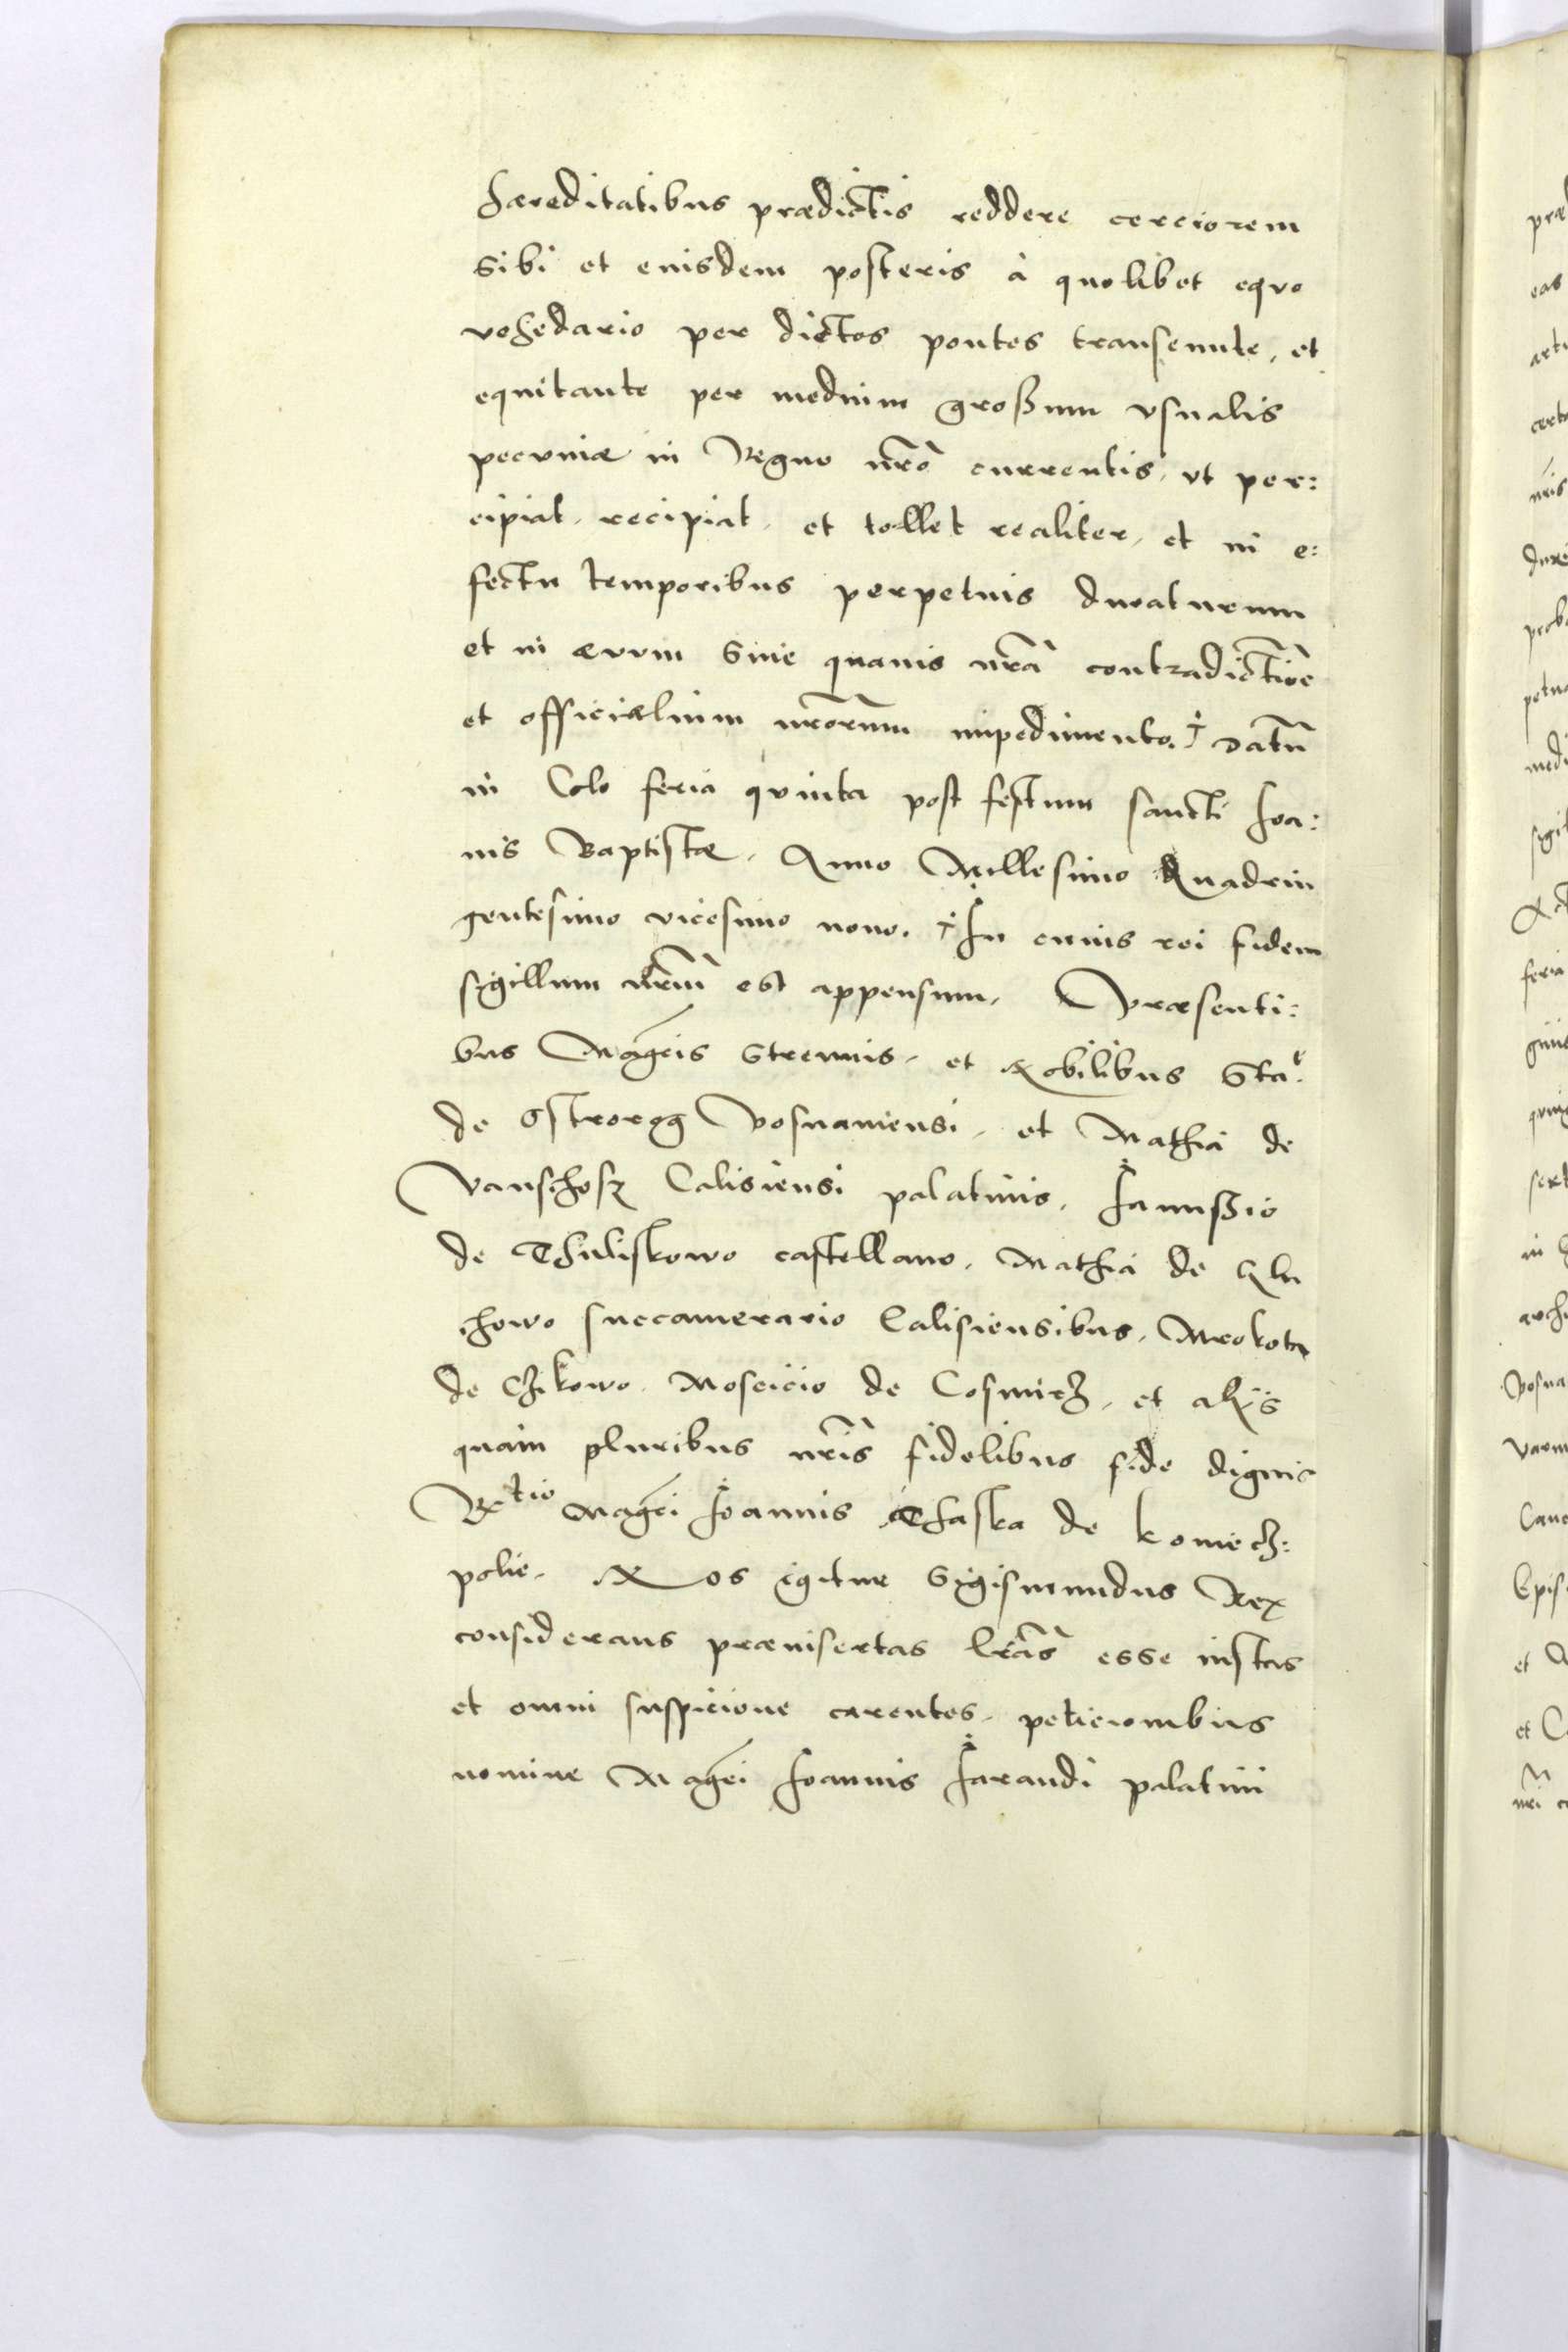 Hæreditatibus prædictis reddere cerciorem
sibi et eiusdem posteris à quolibet equo
vehedario per dictos pontes transeunte, et
equitante per medium großum vsualis
pecuniæ in Regno nr̃o currentis, vt per:
cipiat, recipiat, et tollet realiter, et in e:
fectu temporibus perpetuis duraturum
et in ævvm sine quauis nr̃a contradictiõe
et officialium nr̃orum impedimento. † Datũ
in Colo feria quinta post festum sancti Joa:
nis Baptistæ, Anno Millesimo Quadrin
gentesimo vicesimo nono. † In cuius rei fidem
sigillum nr̃um est appensum, Præsenti:
bus Mag̃cis Strenuis, et Nobilibus Sta:
de Ostrorog Posnaniensi, et Mathia de
Vanschosz Calisiensi palatinis, Janußio
de Thuliskowo castellano, Mathia de Glu
chowo succamerario Calisiensibus, Mrokota
de Czikowo, Moscicio de Cosmicz, et alijs
quàm pluribus nr̃is fidelibus fide dignis
Rtio Mag̃ci Joannis Thaska de Koniecz:
polie. Nos igitur Sigismundus Rex
considerans præinsertas lr̃as esse iustas
et omni suspicione carentes, peticionibus
nomine Mag̃ci Joannis Jarandi palatini